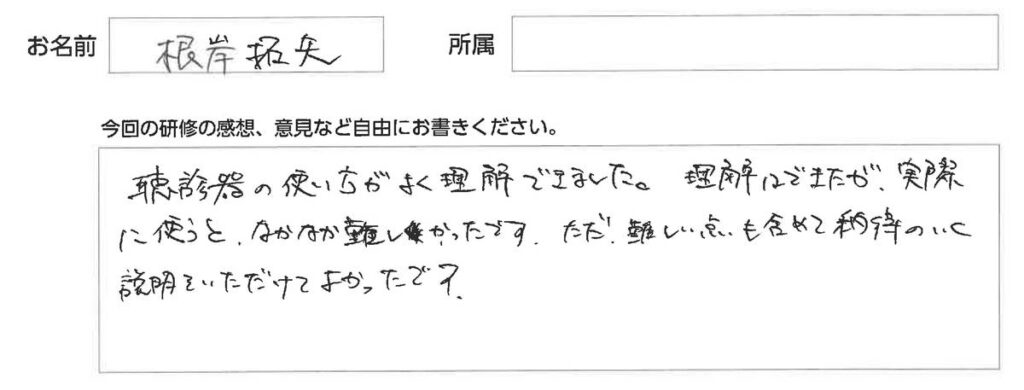 お名前 根岸 拓矢 所属
今回の研修の感想、意見など自由にお書きください。
聴診器の使い方がよく理解できました。理解はできたが、実際
に使うと、なかなか難しかったです。ただ、難しい点も含めて納得のいく
説明をいただけてよかったです。